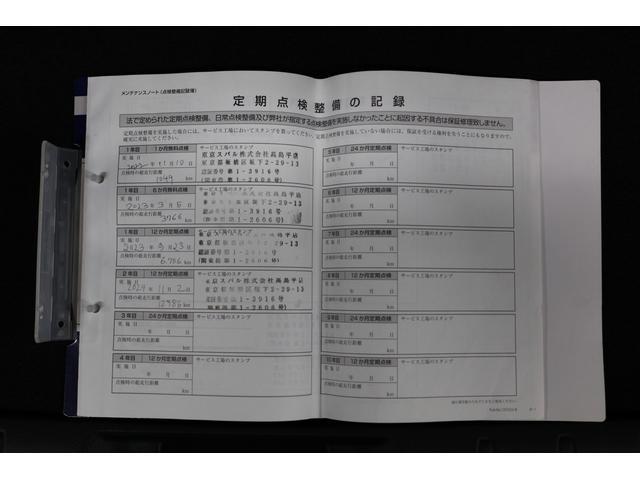 メンテナンスノート（点検整備記録簿）
定期点検整備の記録
法で定められた定期点検整備、日常点検整備及び弊社が指定する点検整備を実施しなかったことに起因する不具合は保証修理致しません。
定期点検整備を実施した場合には、サービス工場においてスタンプを貰ってください。定期点検整備を実施していない場合には、保証を受ける権利を失うことにもなりますので、
確実に実施してください。
1年目 1か月無料点検 サービス工場のスタンプ
実施日 東京スバル株式会社高島平店
2022年11月10日 東京都板橋区坂下2-29-13
点検時の総走行距離 認証番号 第1-3916号
1049 km （関東第1-2606号）
1年目 6か月無料点検 サービス工場のスタンプ
実施日 東京スバル株式会社高島平店
2023年3月5日 東京都板橋区坂下2-29-13
点検時の総走行距離 第1-3916号
3766 km 第1-2606号）
1年目 12か月定期点検 サービス工場のスタンプ
実施日 東京スバル株式会社高島平店
2023年9月23日 東京都板橋区坂下2-29-13
点検時の総走行距離 認証番号 第1-3916号
6,756 km （関東第1-2606号）
2年目 12か月定期点検 サービス工場のスタンプ
実施日 東京スバル株式会社高島平店
2024年11月2日 東京都板橋区坂下2-29-13
点検時の総走行距離 認証番号 第1-3916号
km （関東第1-2606号）
3年目 24か月定期点検 サービス工場のスタンプ
実施日
年 月 日
点検時の総走行距離
km
4年目 12か月定期点検 サービス工場のスタンプ
実施日
年 月 日
点検時の総走行距離
km
5年目 24か月定期点検 サービス工場のスタンプ
実施日
年 月 日
点検時の総走行距離
km
6年目 12か月定期点検 サービス工場のスタンプ
実施日
年 月 日
点検時の総走行距離
km
7年目 24か月定期点検 サービス工場のスタンプ
実施日
年 月 日
点検時の総走行距離
km
8年目 12か月定期点検 サービス工場のスタンプ
実施日
年 月 日
点検時の総走行距離
km
9年目 24か月定期点検 サービス工場のスタンプ
実施日
年 月 日
点検時の総走行距離
km
10年目 12か月定期点検 サービス工場のスタンプ
実施日
年 月 日
点検時の総走行距離
km